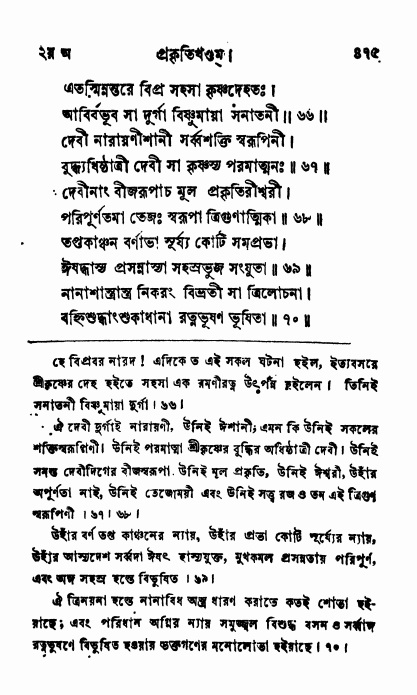 ২য় অ প্রকৃতিখণ্ডম্। ৪৭৫
এতস্মিন্নন্তরে বিপ্র সহসা কৃষ্ণদেহতঃ।
আবির্বভূব সা দুর্গা বিষ্ণুমায়া সনাতনী॥ ৬৬॥
দেবী নারায়ণীশানী সর্ব্বশক্তি স্বরূপিনী।
বুদ্ধ্যধিষ্ঠাত্রী দেবী সা কৃষ্ণস্য পরমাত্মনঃ॥ ৬৭॥
দেবীনাং বীজরূপাচ মূল প্রকৃতিরীশ্বরী।
পরিপূর্ণতমা তেজঃ স্বরূপা ত্রিগুণাত্মিকা॥ ৬৮॥
তপ্তকাঞ্চন বর্ণাভা সূর্য্য কোটি সমপ্রভা।
ঈষদ্ধাস্য প্রসন্নাস্যা সহস্রভুজ সংযুতা॥ ৬৯॥
নানাশাস্ত্রাস্ত্র নিকরং বিভ্রতী সা ত্রিলোচনা।
বহ্নিশুদ্ধাংশুকাধানা রত্নভূষণ ভূষিতা॥ ৭০॥
হে বিপ্রবর নারদ! এদিকে ত এই সকল ঘটনা হইল, ইত্যবসরে
শ্রীকৃষ্ণের দেহ হইতে সহসা এক রমণীরত্ন উৎপন্ন হইলেন। তিনিই
সনাতনী বিষ্ণুমায়া দুর্গা।৬৬।
ঐ দেবী দুর্গাই নারায়ণী, উনিই ঈশানী; এমন কি উনিই সকলের
শক্তিস্বরূপিণী। উনিই পরমাত্মা শ্রীকৃষ্ণের বুদ্ধির অধিষ্ঠাত্রী দেবী। উনিই
সমস্ত দেবীদিগের বীজস্বরূপা. উনিই মূল প্রকৃতি, উনিই ঈশ্বরী, উহাঁর
অপূর্ণতা নাই, উনিই তেজোময়ী এবং উনিই সত্ত্ব রজ ও তম এই ত্রিগুণ
স্বরূপিণী।৬৭।৬৮।
উহাঁর বর্ণ তপ্ত কাঞ্চনের ন্যায়, উহাঁর প্রভা কোটি সূর্য্যের ন্যায়,
উহাঁর আস্যদেশ সর্ব্বদা ঈষৎ হাস্যযুক্ত, মুখকমল প্রসন্নতায় পরিপূর্ণ,
এবং অঙ্গ সহস্র হস্তে বিভূষিত।৬৯।
ঐ ত্রিনয়না হস্তে নানাবিধ অস্ত্র ধারণ করাতে কতই শোভা হই-
য়াছে; এবং পরিধান অগ্নির ন্যায় সমুজ্জ্বল বিশুদ্ধ বসন ও সর্ব্বাঙ্গ
রত্নভূষণে বিভূষিত হওয়ায় ভক্তগণের মনোলোভা হইয়াছে।৭০।